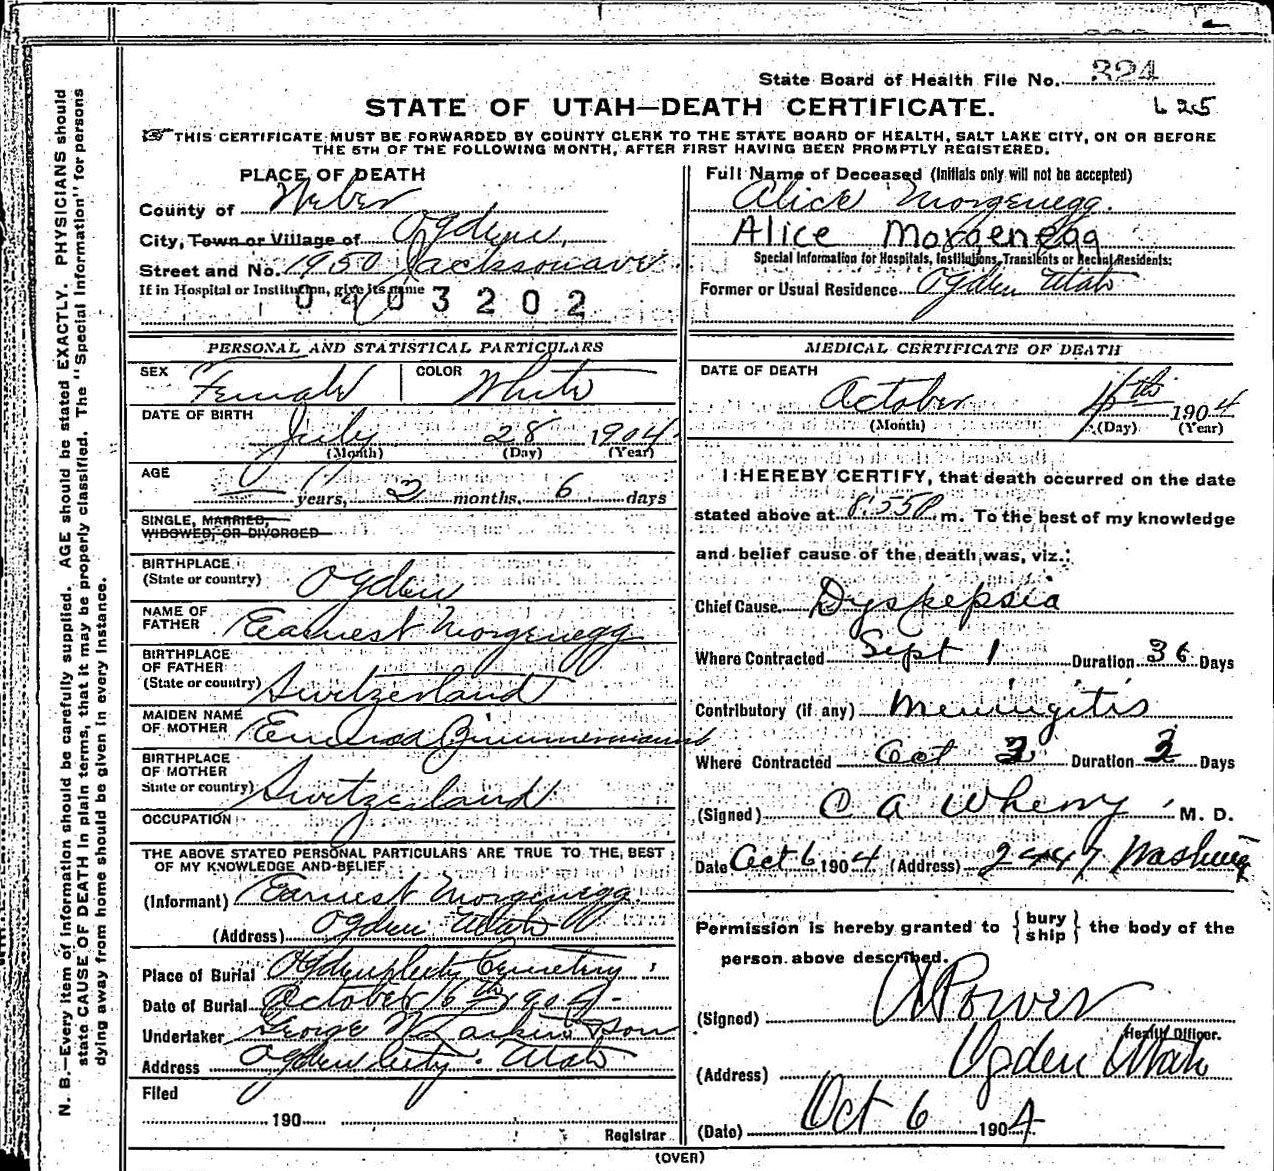 State Board of Health File No. 324
STATE OF UTAH—DEATH CERTIFICATE.
625
THIS CERTIFICATE MUST BE FORWARDED BY COUNTY CLERK TO THE STATE BOARD OF HEALTH, SALT LAKE CITY, ON OR BEFORE
THE 5TH OF THE FOLLOWING MONTH, AFTER FIRST HAVING BEEN PROMPTLY REGISTERED.
N. B.—Every item of information should be carefully supplied. AGE should be stated EXACTLY. PHYSICIANS should
state CAUSE OF DEATH in plain terms, that it may be properly classified. The "Special Information" for persons
dying away from home should be given in every instance.
PLACE OF DEATH
County of Weber
City, Town or Village of Ogden,
Street and No. 1950 Jackson ave
If in Hospital or Institution, give its name
0403202
PERSONAL AND STATISTICAL PARTICULARS
SEX Female COLOR White
DATE OF BIRTH
July 28 1904
(Month) (Day) (Year)
AGE
— years, 2 months, 6 days
SINGLE, MARRIED,
WIDOWED, OR DIVORCED
BIRTHPLACE
(State or country) Ogden
NAME OF
FATHER Earnest Morgenegg
BIRTHPLACE
OF FATHER
(State or country) Switzerland
MAIDEN NAME
OF MOTHER Zimmermann
BIRTHPLACE
OF MOTHER
State or country) Switzerland
OCCUPATION
THE ABOVE STATED PERSONAL PARTICULARS ARE TRUE TO THE BEST
OF MY KNOWLEDGE AND BELIEF
(Informant) Earnest Morgenegg
(Address) Ogden Utah
Place of Burial Ogden City Cemetery
Date of Burial October 6th 1904
Undertaker George W Larkin & Son
Address Ogden City. Utah
Filed
190
Registrar
Full Name of Deceased (Initials only will not be accepted)
Alice Morgenegg.
Alice Morgenegg
Special Information for Hospitals, Institutions, Transients or Recent Residents:
Former or Usual Residence Ogden Utah
MEDICAL CERTIFICATE OF DEATH
DATE OF DEATH
October 4th 1904
(Month) (Day) (Year)
I HEREBY CERTIFY, that death occurred on the date
stated above at 8:55 P. m. To the best of my knowledge
and belief cause of the death was, viz.:
Chief Cause Dyspepsia
Where Contracted Sept 1 Duration 36 Days
Contributory (if any) Meningitis
Where Contracted Oct 3 Duration 3 Days
(Signed) C A Wherry M. D.
Date Oct 6 1904 (Address) 2447 Washing
Permission is hereby granted to { bury
ship } the body of the
person above described.
(Signed) Power
Health Officer.
(Address) Ogden Utah
(Date) Oct 6 1904
(OVER)